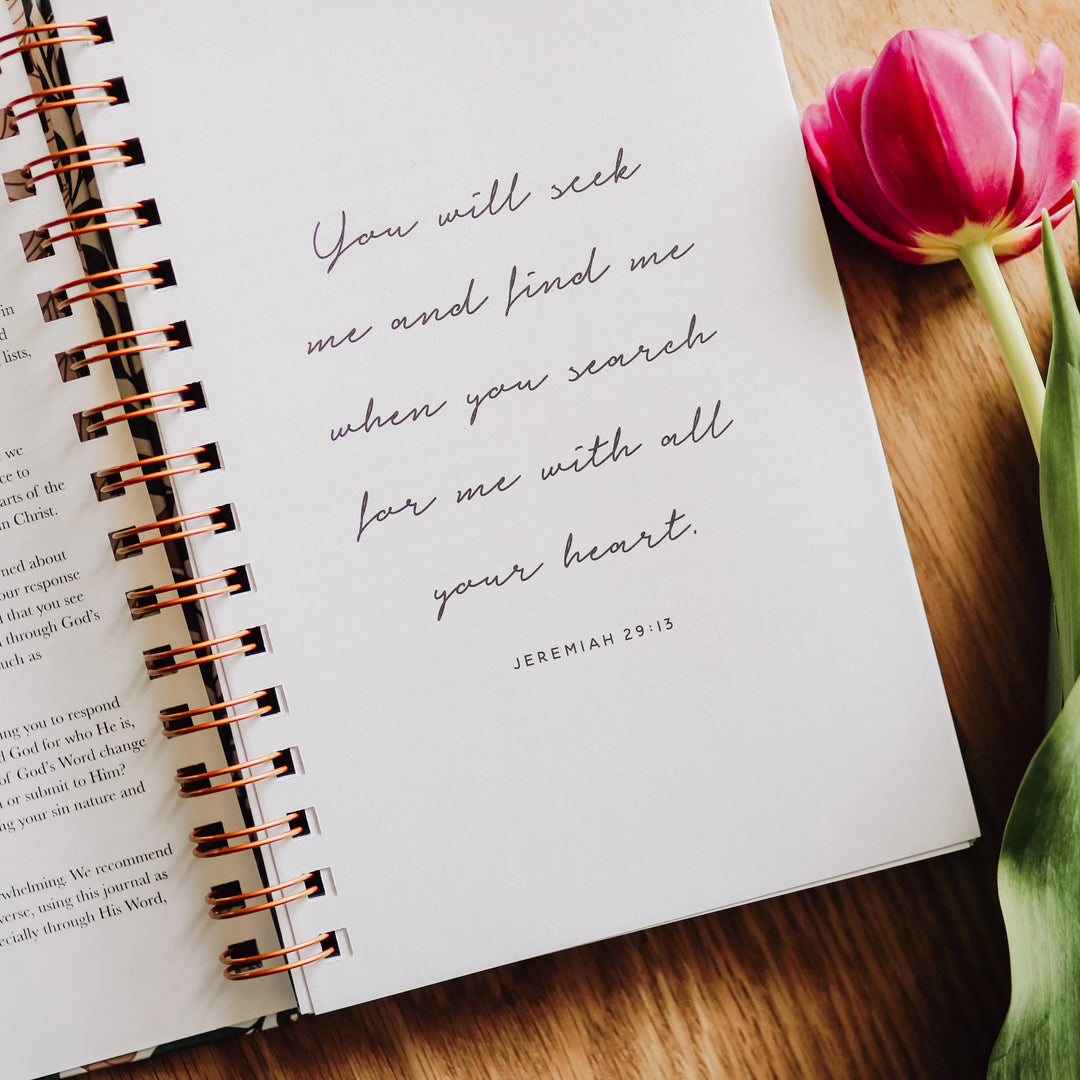 in
lists,
we
to
arts of the
in Christ.
about
our response
that you see
through God's
such as
you to respond
God for who He is,
of God's Word change
or submit to Him?
your sin nature and
We recommend
verse, using this journal as
through His Word,
You will seek
me and find me
when you search
for me with all
your heart.
JEREMIAH 29:13